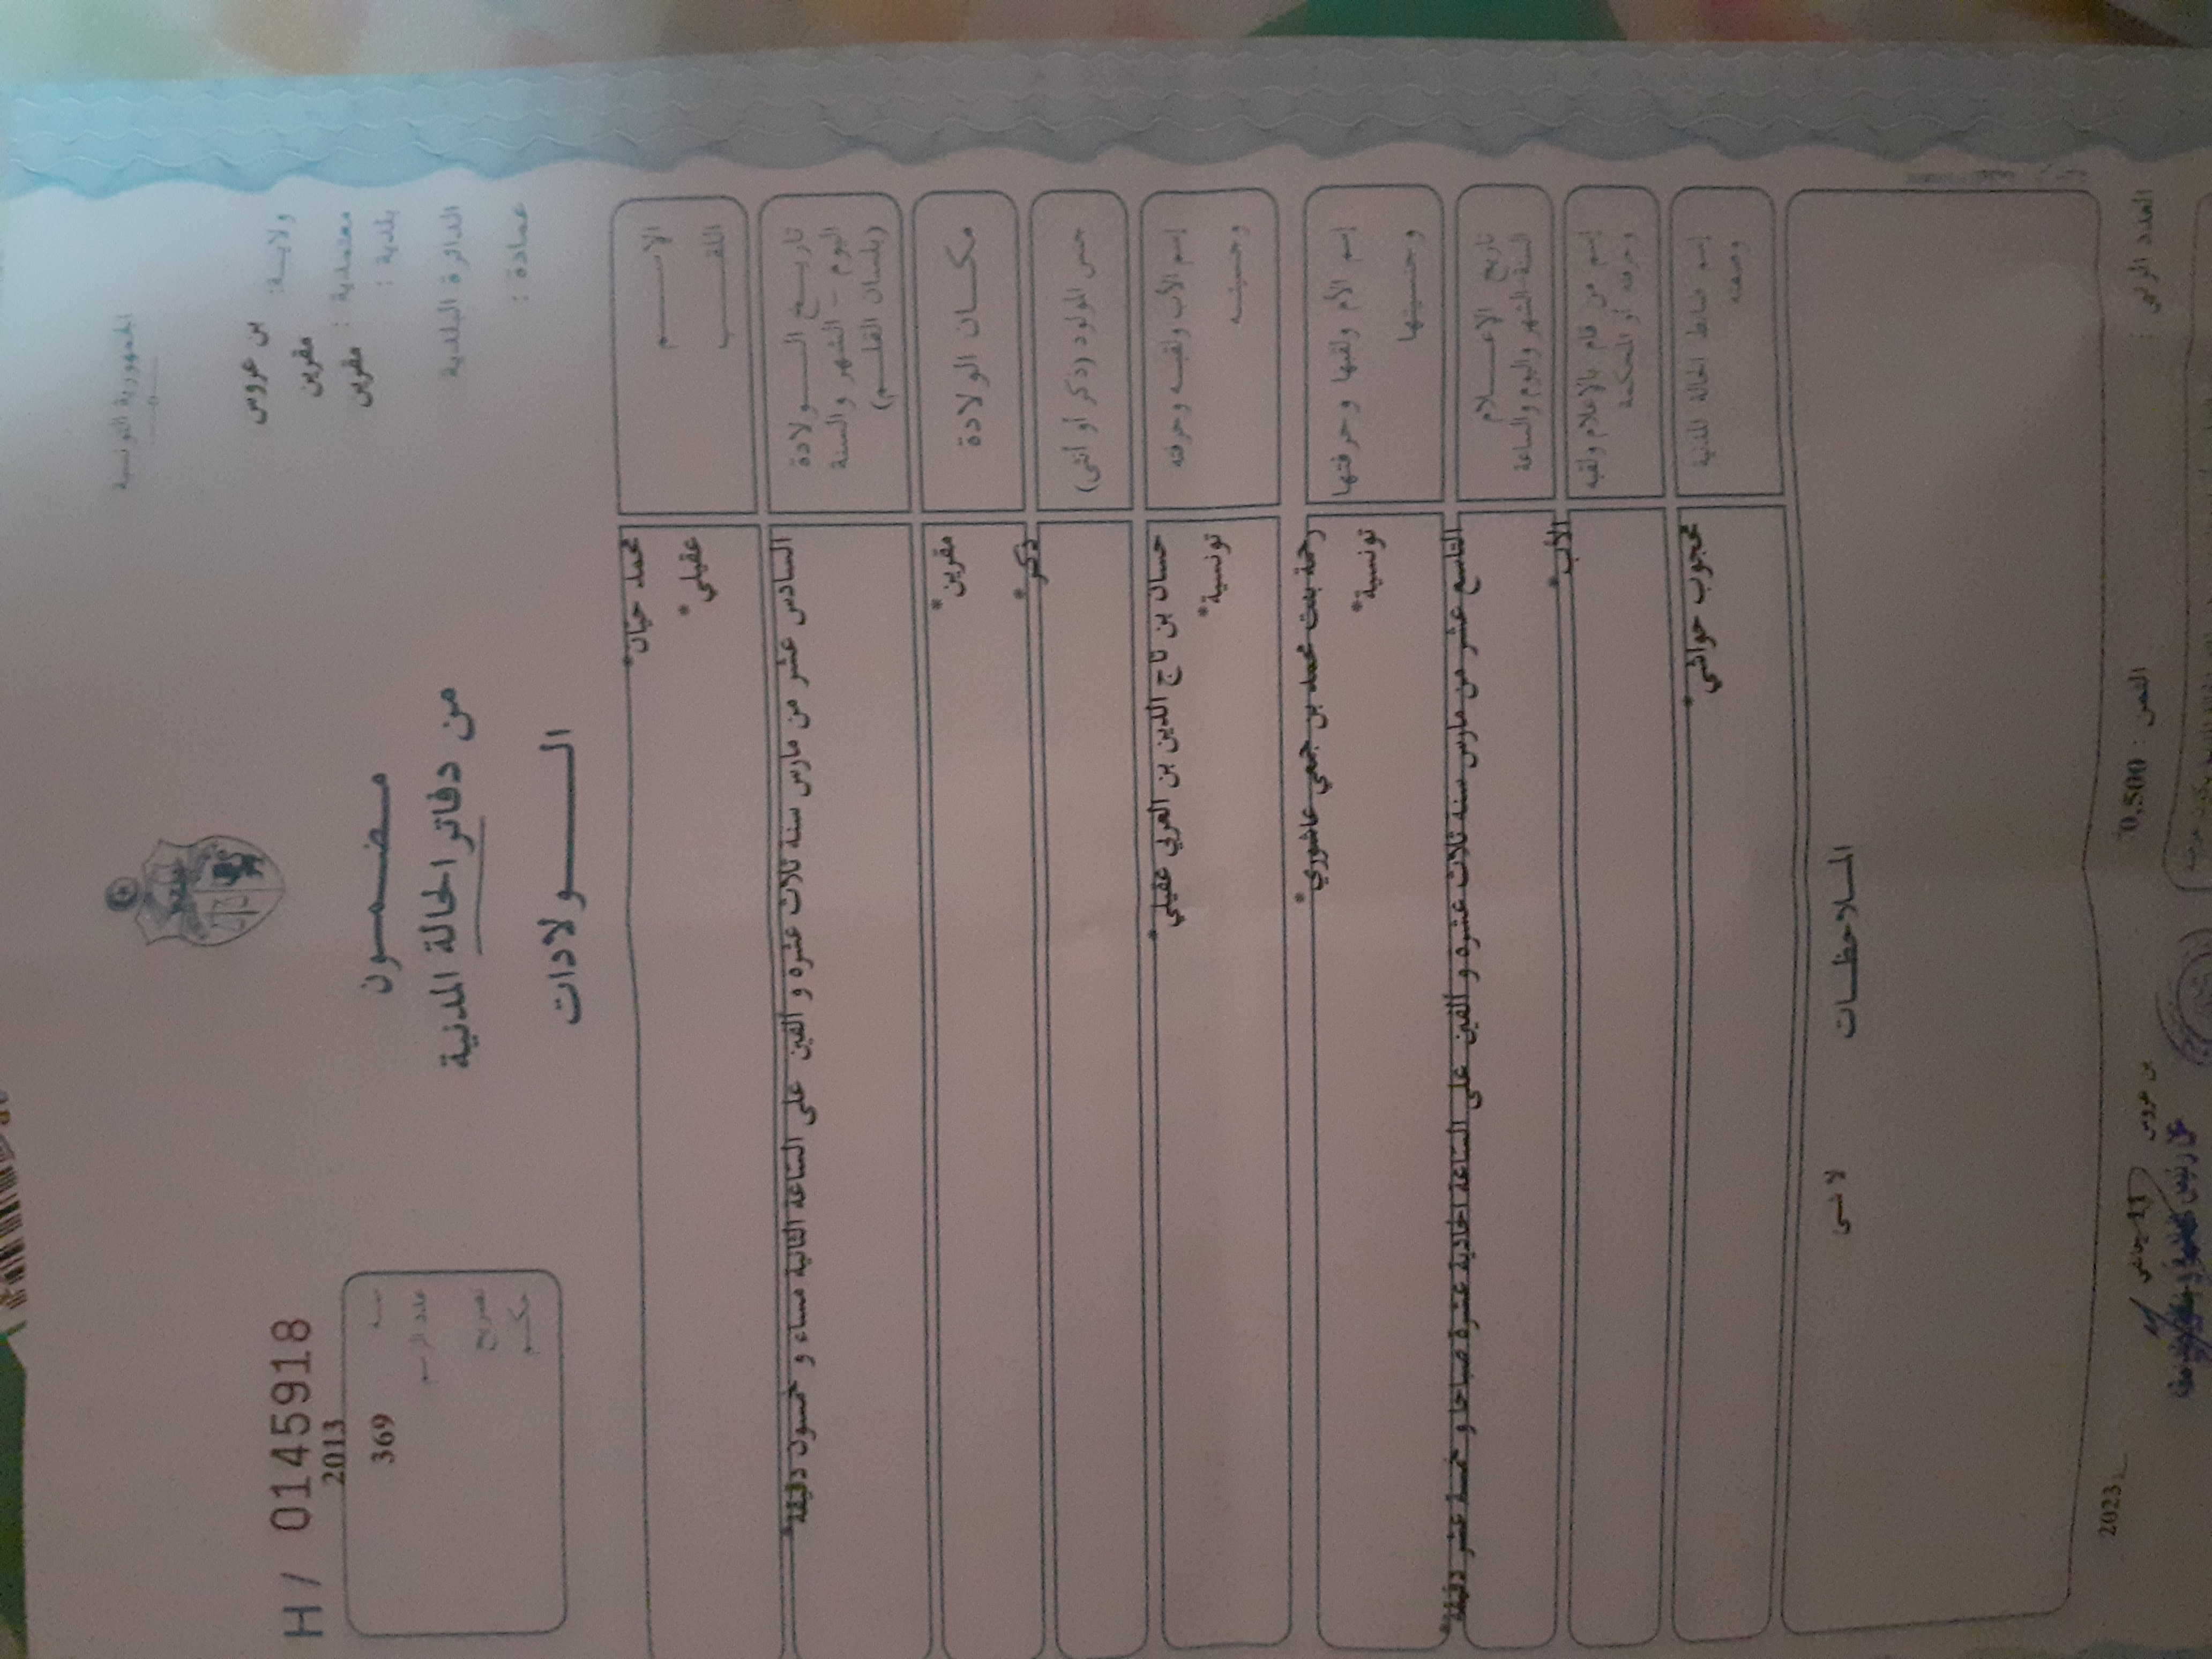 الجمهورية التونسية
ولايــة: بن عروس
معتمدية : مقرين
بلدية : مقرين
الدائرة البلدية
عمادة :
مـضـمـــون
من دفاتر الحالة المدنية
الـــــولادات
H/ 0145918
2013
سنــة
369
عدد الرســم
تصريح
حكــم
الاســــم
محمد حيان*
اللقــــب
عقيلي*
تاريــخ الـــولادة
اليوم - الشهر والسنة
(بلسان القلــم)
السادس عشر من مارس سنة ثلاث عشرة و ألفين على الساعة الثانية مساء و خمسون دقيقة*
مكــان الولادة
مقرين*
جنس المولود (ذكر أو أنثى)
ذكر*
إسم الأب ولقبــه وحرفته
حسان بن تاج الدين بن العربي عقيلي*
وجنسيتــه
تونسية*
إسم الأم ولقبها وحرفتها
رحمة بنت محمد بن جمعي عاشوري*
وجنسيتها
تونسية*
تاريخ الإعـــلام
السنة والشهر واليوم والساعة
التاسع عشر من مارس سنة ثلاث عشرة و ألفين على الساعة الحادية عشرة صباحا و خمسة عشر دقيقة*
إسم من قام بالإعلام ولقبه
وحرفته أو المحكمة
الأب*
إسم ضابط الحالة المدنية
وصفته
محجوب حواشي*
المــلاحظــات
لا شئ
العدد الرتبي :
الثمن : 0,500
بن عروس
11 جانفي
2023